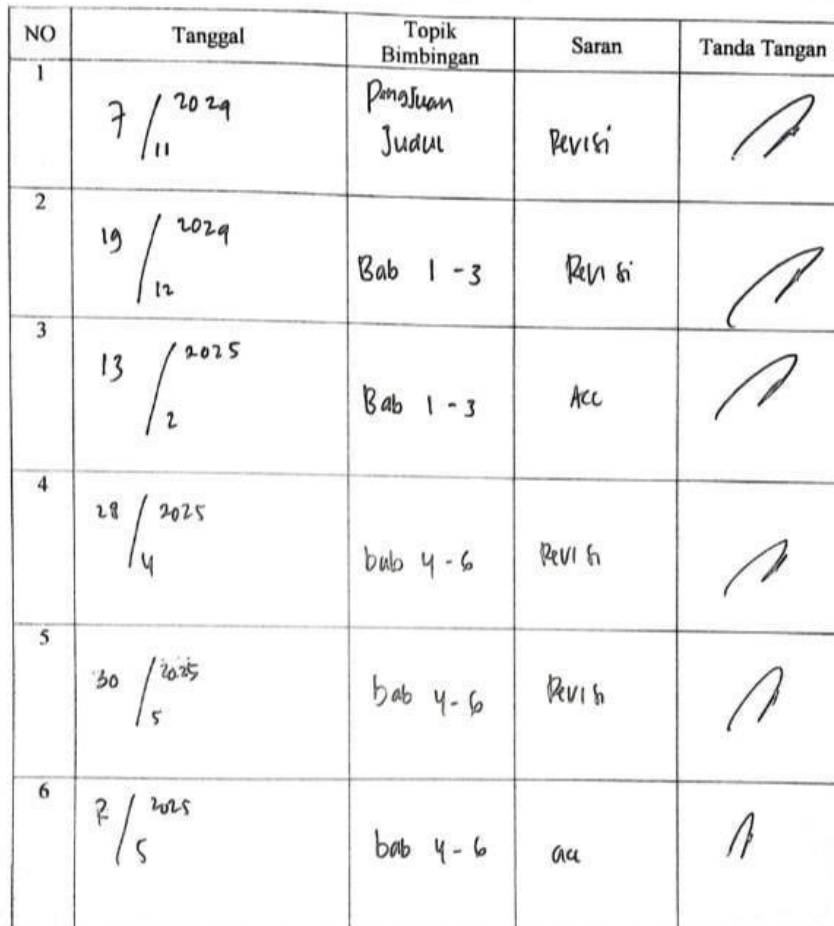 NO Tanggal Topik Bimbingan Saran Tanda Tangan
1 7/11 2024 Pengajuan Judul Revisi
2 19/12 2024 Bab 1 - 3 Revisi
3 13/2 2025 Bab 1 - 3 Acc
4 28/4 2025 bab 4 - 6 Revisi
5 30/5 2025 bab 4 - 6 Revisi
6 /5 2025 bab 4 - 6 acc